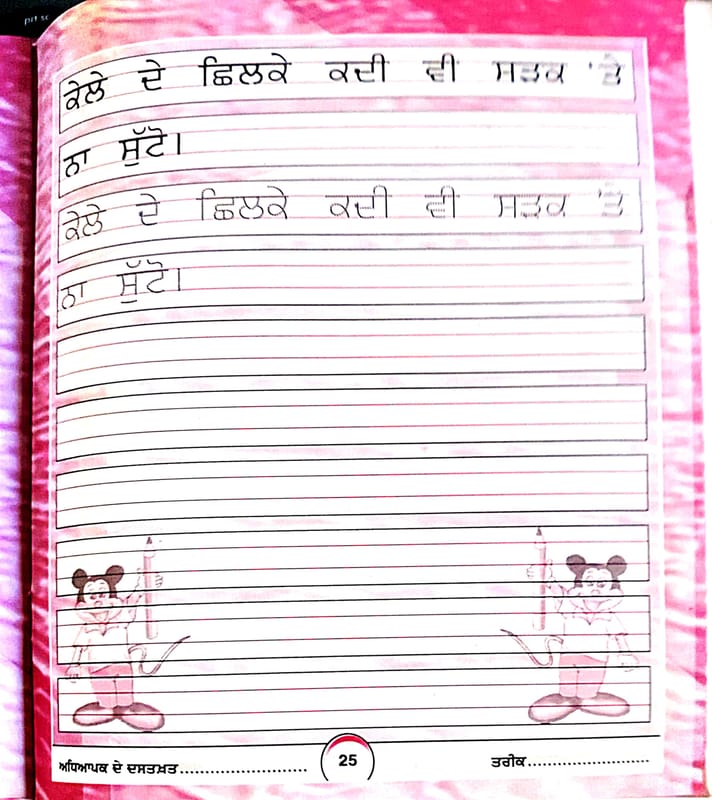 ਕੇਲੇ ਦੇ ਛਿਲਕੇ ਕਦੀ ਵੀ ਸੜਕ 'ਤੇ
ਨਾ ਸੁੱਟੋ।
ਕੇਲੇ ਦੇ ਛਿਲਕੇ ਕਦੀ ਵੀ ਸੜਕ 'ਤੇ
ਨਾ ਸੁੱਟੋ।
ਅਧਿਆਪਕ ਦੇ ਦਸਤਖ਼ਤ........................... 25 ਤਰੀਕ..........................